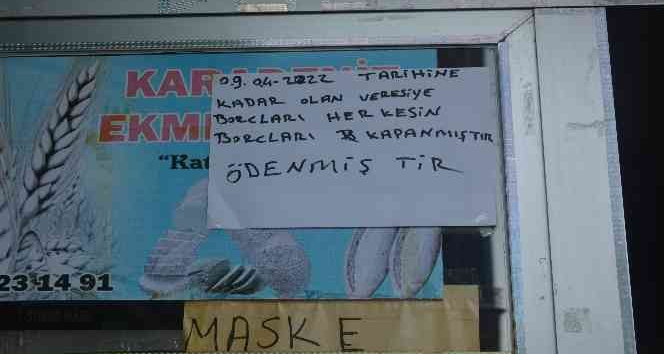 KARADENİZ
EKM
"Kat
09.04-2022 TARİHİNE
KADAR OLAN VERESİYE
BORCLARI HERKESİN
BORCLARI KAPANMIŞTIR
ÖDENMİŞ TİR
23 14 91
MASKE